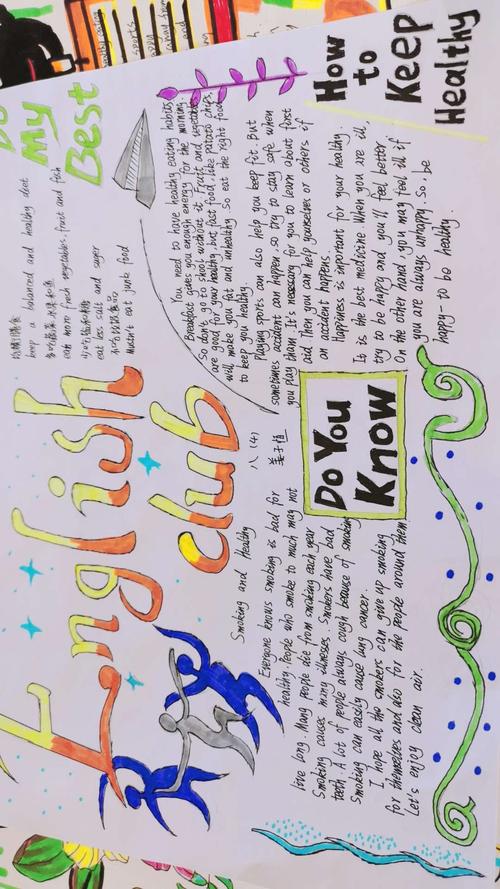 My
Best
English
club
How
to
Keep
Healthy
keep a balanced and healthy diet
eat more fresh vegetables, fruit and fish
eat less salt and suger
Mustn't eat junk food
You need to have healthy eating habits,
Breakfast gives you enough energy for the morning.
So don't go to shool without it. Fruit and vegetables
are good for your healthy, but fast food, like potato chips,
will make you fat and unhealthy So eat the right food
to keep you healthy.
Playing sports can also help you keep fit. But
sometimes accident can happen, so try to stay safe when
you play them It's necessary for you to learn about first
aid Then you can help yourselves or others if
an accident happens
Happiness is important for your healthy.
It is the best medicine When you are ill,
try to be happy and you'll feel better
On the other hand, you may feel ill if
you are always unhappy. So, be
happy - to be healthy.
八(4)
Do You
Know
Smoking and Healthy
Everyone knows smoking is bad for
healthy. People who smoke to much may not
live long. Many people die from smoking each year
Smoking causes many illnesses. Smokers have bad
teeth. A lot of people always cough because of smoking
Smoking can easily cause lung cancer.
I hope all the smokers can give up smoking
for themselves and also for the people around them
Let's enjoy clean air.